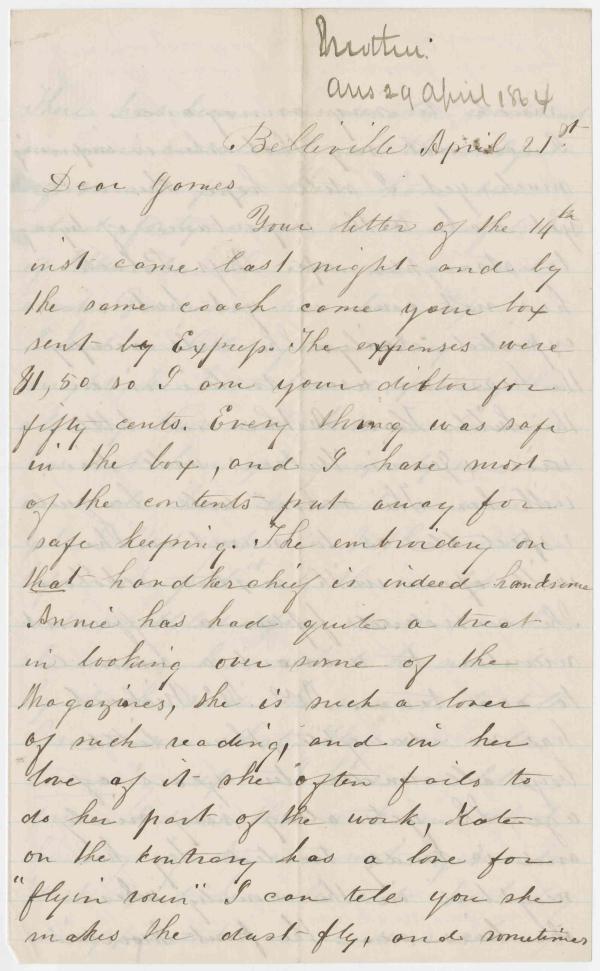 Mother.
Ans 29 April 1864
Belleville April 21st.
Dear James
Your letter of the 14th
inst came last night and by
the same coach came your box
sent by Express. The expenses were
$1,50 so I am your debtor for
fifty cents. Every thing was safe
in the box, and I have most
of the contents put away for
safe keeping. The embroidery on
that handkerchief is indeed handsome
Annie has had quite a treat
in looking over some of the
Magazines, she is such a lover
of such reading, and in her
love of it she often fails to
do her part of the work, Kate
on the kontrary has a love for
"flyin roun" I can tele you she
makes the dust fly, and sometimes